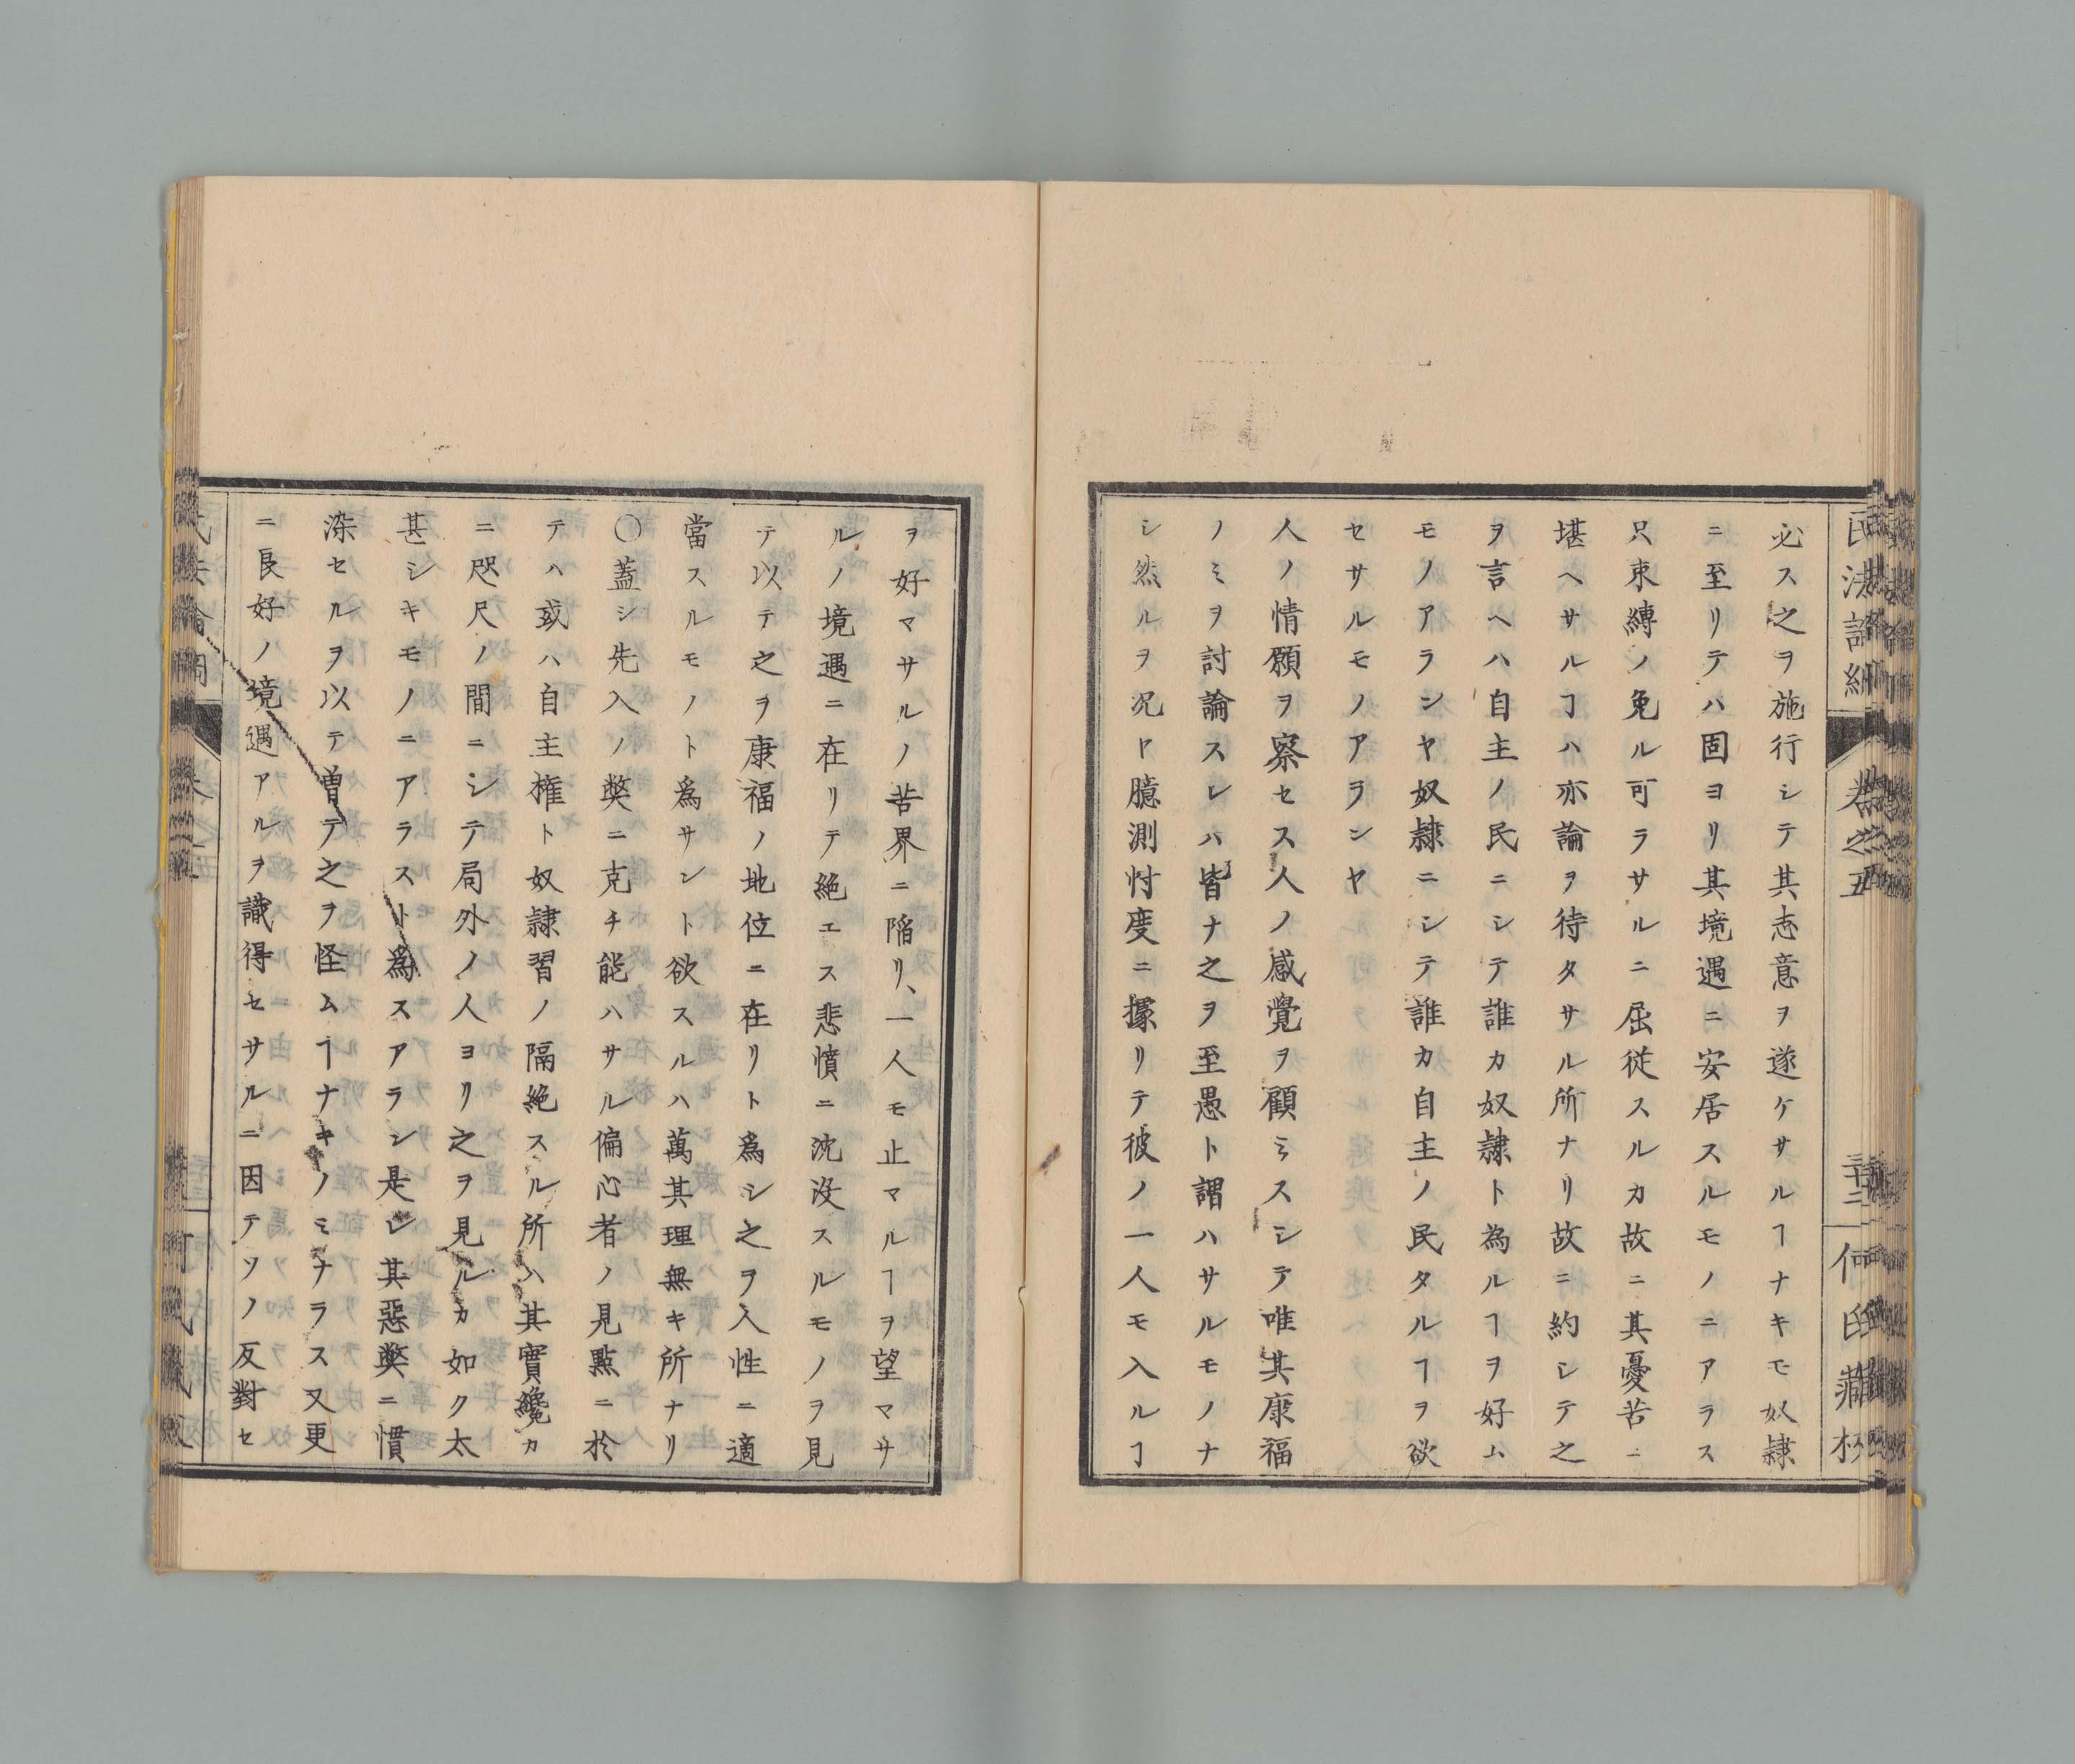 必ス之ヲ施行シテ其志意ヲ遂ケサルヿナキモ奴隷
ニ至リテハ固ヨリ其境遇ニ安居スルモノニアラス
只束縛ノ免ル可ラサルニ屈従スルカ故ニ其憂苦ニ
堪ヘサルヿハ亦論ヲ待タサル所ナリ故ニ約シテ之
ヲ言ヘハ自主ノ民ニシテ誰カ奴隷ト為ルヿヲ好ム
モノアランヤ奴隷ニシテ誰カ自主ノ民タルヿヲ欲
セサルモノアランヤ
人ノ情願ヲ察セス人ノ感覺ヲ顧ミスシテ唯其康福
ノミヲ討論スレハ皆ナ之ヲ至愚ト謂ハサルモノナ
シ然ルヲ况ヤ臆測忖度ニ據リテ彼ノ一人モ入ルヿ
ヲ好マサルノ苦界ニ陥リ、一人モ止マルヿヲ望マサ
ルノ境遇ニ在リテ絶エス悲憤ニ沈没スルモノヲ見
テ以テ之ヲ康福ノ地位ニ在リト爲シ之ヲ人性ニ適
當スルモノト爲サント欲スルハ萬其理無キ所ナリ
〇蓋シ先入ノ獘ニ克チ能ハサル偏心者ノ見點ニ於
テハ或ハ自主権ト奴隷習ノ隔絶スル所ハ其實纔カ
ニ咫尺ノ間ニシテ局外ノ人ヨリ之ヲ見ルカ如ク太
甚シキモノニアラスト爲スアラン是レ其惡獘ニ慣
染セルヲ以テ曽テ之ヲ怪ムヿナキノミナラス又更
ニ良好ノ境遇アルヲ識得セサルニ因テソノ反對セ
民法論綱
卷之五
三十二
何氏藏板